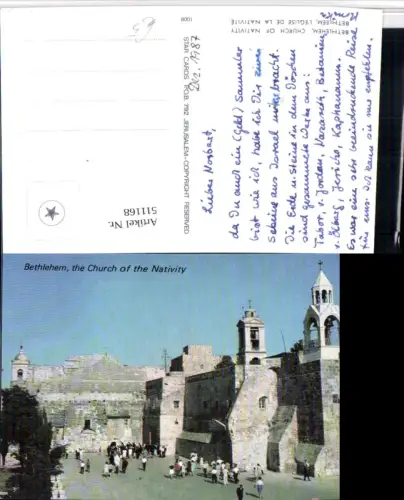 BETHLEHEM, CHURCH OF NATIVITY
BETHLEEM, L'EGLISE DE LA NATIVITÉ
1008
STAR CARDS P.O.B. 7192 JERUSALEM–COPYRIGHT RESERVED
2.12.1987
Lieber Norbert,
da Du auch ein (Geld) Sammler
bist wie ich, habe ich Dir zwei
Scheine aus Israel mitgebracht.
Die Erde u. Steine in dem Döschen
sind gesammelte Werke aus:
Tabor, v. Jordan, Nazareth, Bethanien
Jericho, Kapharnaum.
Es war eine sehr beeindruckende Reise
für uns. Ich kann sie nur empfehlen.
Artikel Nr.
511168
Bethlehem, the Church of the Nativity